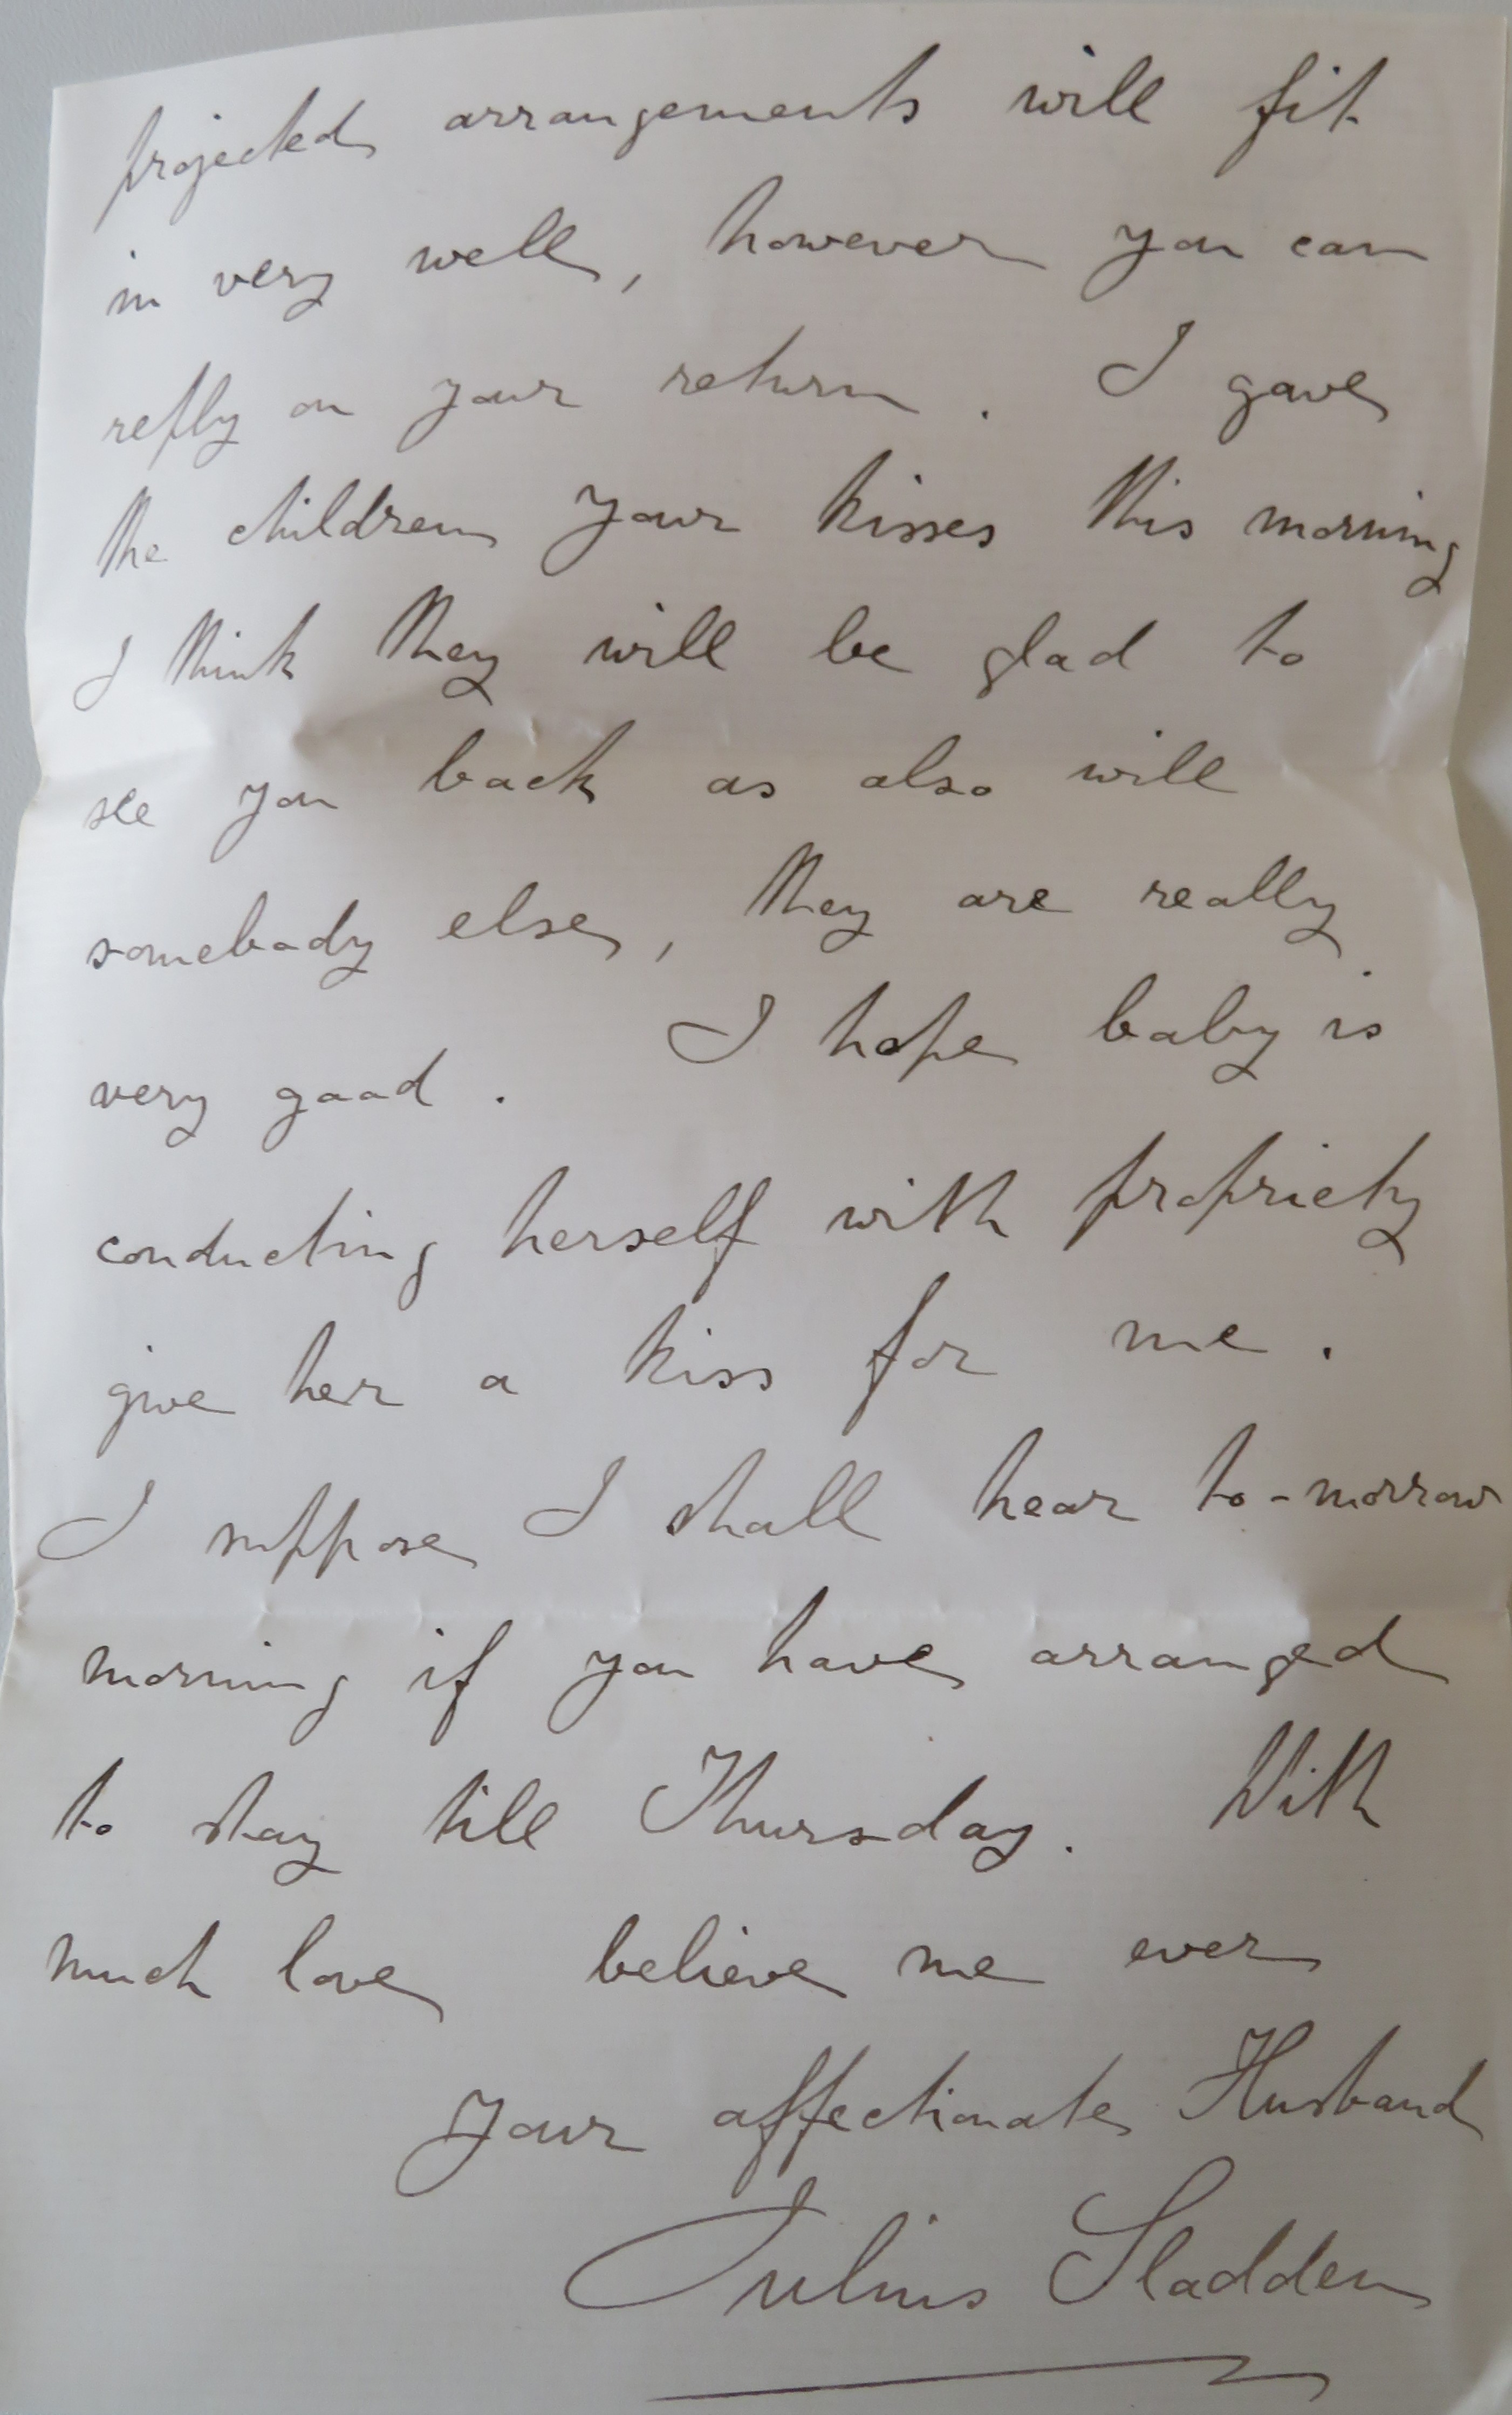 projected arrangements will fit
in very well, however you can
reply on your return. I gave
the children your kisses this morning
I think they will be glad to
see you back as also will
somebody else, they are really
very good. I hope baby is
conducting herself with propriety
give her a kiss for me.
I suppose I shall hear to-morrow
morning if you have arranged
to stay till Thursday. With
much love believe me ever
Your affectionate Husband
Julius Sladden